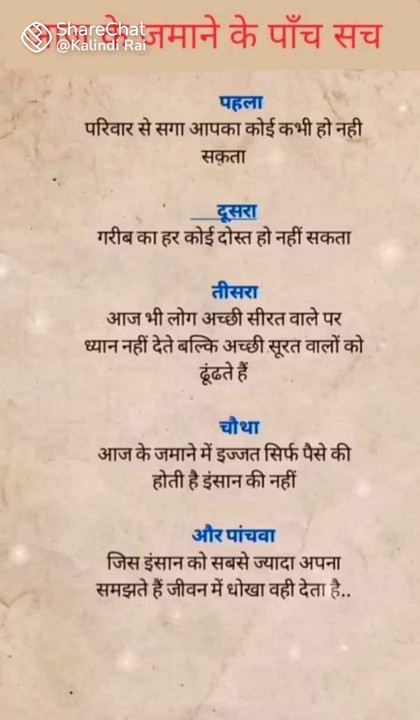 ShareChat
@Kalindi Rai
के जमाने के पाँच सच
पहला
परिवार से सगा आपका कोई कभी हो नही
सकता
दूसरा
गरीब का हर कोई दोस्त हो नहीं सकता
तीसरा
आज भी लोग अच्छी सीरत वाले पर
ध्यान नहीं देते बल्कि अच्छी सूरत वालों को
ढूंढते हैं
चौथा
आज के जमाने में इज्जत सिर्फ पैसे की
होती है इंसान की नहीं
और पांचवा
जिस इंसान को सबसे ज्यादा अपना
समझते हैं जीवन में धोखा वही देता है..